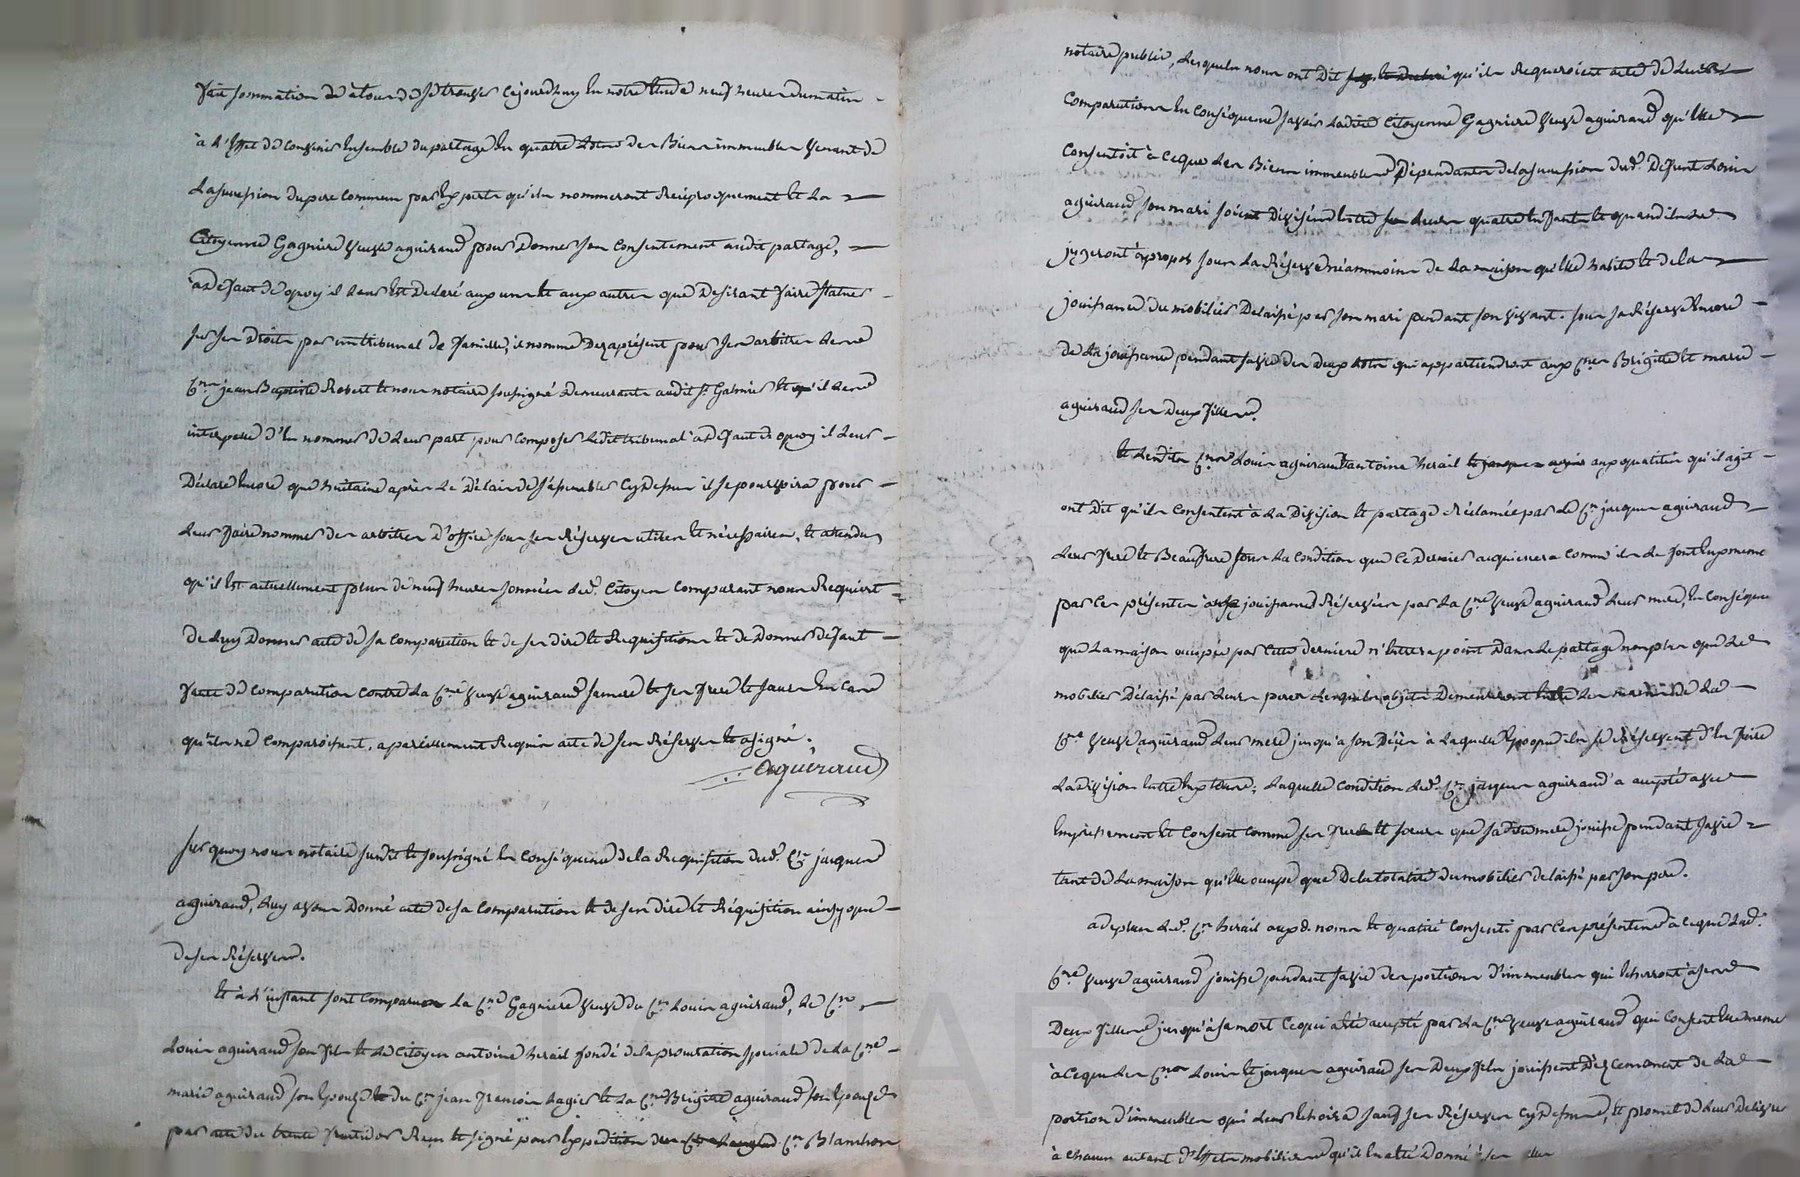 fait sommation de et se trouver cejourdhuy en notre etude neuf heures du matin
à l'effet de convenir ensemble du partage en quatre lots des Biens immeubles venant de
la succession du pere commun par experts qu'ils nommeront réciproquement et la
Citoyenne Gagniere veuve aguiraud pour donner son consentement audit partage,
à défaut de quoy il leur est declaré aux uns et aux autres que desirant faire statuer
sur ses droits par un tribunal de famille, il nomme dez aprésent pour ses arbitres les
Cns jean Baptiste Robert et nous notaire soussigné demeurants audit st Galmier et qu'il les
interpelle d'en nommer de leur part pour composer ledit tribunal à défaut de quoy il leur
Déclare encore que huitaine après le délai de s'assembler cy dessus il se pourvoira pour
leur faire nommer des arbitres d'office sous ses réserves utiles et nécessaires, et attendu
qu'il est actuellement plus de neuf heures sonnées led. Citoyen comparant nous Requiert
de luy donner acte de sa comparution et de ses dire et Requisition et de donner défaut
faute de comparution contre la Cne veuve aguiraud sa mere et ses frere et sœurs en cas
qu'ils ne comparoissent, a pareillement Requis acte de ses Réserves et a signé.
aguiraud
sur quoy nous notaire susdit et soussigné en conséquence de la Requisition dud. Cn jacques
aguiraud, luy avons Donné acte de sa comparution et de ses dire et Réquisition ainsy que
de ses Réserves.
et à l'instant sont comparus la Cne Gagniere veuve du Cn Louis aguiraud, le Cn
Louis aguiraud son fils et le Citoyen antoine herail fondé de la procuration speciale de la Cne
marie aguiraud son epouse et du Cn jean francois Lagier et la Cne Brigitte aguiraud son epouse
par acte du trente fructidor Reçu et signé pour expedition Cn Blanchon
notaire public, lesquels nous ont dit qu'ils requeroient acte de leurs
comparutions en conséquence savoir ladite Citoyenne Gagniere veuve aguiraud qu'elle
consentoit à ce que les Biens immeubles Dépendants de la succession dud. Défunt Louis
aguiraud son mari soient divisés entre ses quatre enfants et quand ils le
jugeront à propos sous la Réserve néammoins de la maison qu'elle habite et de la
jouissance du mobilier Délaissé par son mari pendant son vivant. sous sa Réserve encore
de la jouissance pendant sa vie des deux lots qui appartiendront aux Cnes Brigitte et marie
aguiraud ses deux filles.
et lesdits Cns Louis aguiraud antoine herail aux qualités qu'il agit
ont dit qu'ils consentent à la division et partage réclamée par le Cn jacques aguiraud
leur frere et Beaufrere sous la condition que ce dernier acquiesera comm'ils le font eux meme
par ces présentes à la jouissance Réservée par la Cne veuve aguiraud leur mere, en conséquence
que la maison occupée par cette derniere n'entrera point dans le partage non plus que le
mobilier délaissé par leur pere lesquels objets demeureront entre les mains de la
Cne veuve aguiraud leur mere jusqu'a son décès à laquelle Epoque ils se Réservent d'en faire
la division entre eux, laquelle condition led. Cn jacques aguiraud a accepté avec
empressement et consent comme ses frere et sœurs que sa dite mere jouisse pendant sa vie
tant de la maison qu'elle occupe que de la totalité du mobilier delaissé par son pere.
a de plus led. Cn herail aux d. noms et qualité consenti par ces présentes à ce que lad.
Cne veuve aguiraud jouisse pendant sa vie des portions d'immeubles qui echerront à ses
deux filles jusqu'à sa mort ce qui a été accepté par la Cne veuve aguiraud qui consent elle meme
à ce que les Cns Louis et jacques aguiraud ses deux fils jouissent dez ce moment de la
portion d'immeubles qui leur echoira sauf ses Réserves cy dessus, et promet de leur delivrer
à chacun autant d'effets mobiliers qu'il en a été Donné à ses